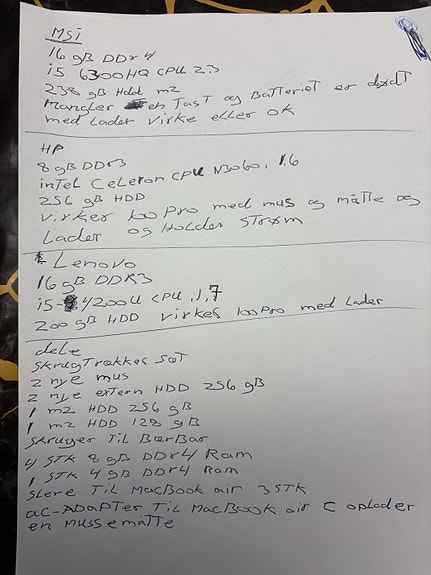 MSi
16 gB DDr4
i5 6300HQ CPU 2.3
238 gB Hdd m2
Mangler en Tast og Batteriet er dødt
med Lader virke eller ok
HP
8 gB DDr3
inTel Celeron CPU N3060. 1.6
256 gB HDD
virker 100 Pro med mus og måtte og
Lader og Holder strøm
Lenovo
16 gB DDR3
i5-4200U CPU 1,7
200 gB HDD virker 100Pro med Lader
dele
skrugTrækker sæT
2 nye mus
2 nye extern HDD 256 gB
1 m2 HDD 256 gB
1 m2 HDD 128 gB
skruger Til BærBar
4 STK 8 gB DDr4 Ram
1 STK 4 gB DDr4 Ram
Til MacBook air 3 STK
ac-ADapTer Til MacBook air C oplader
en mussemåtte